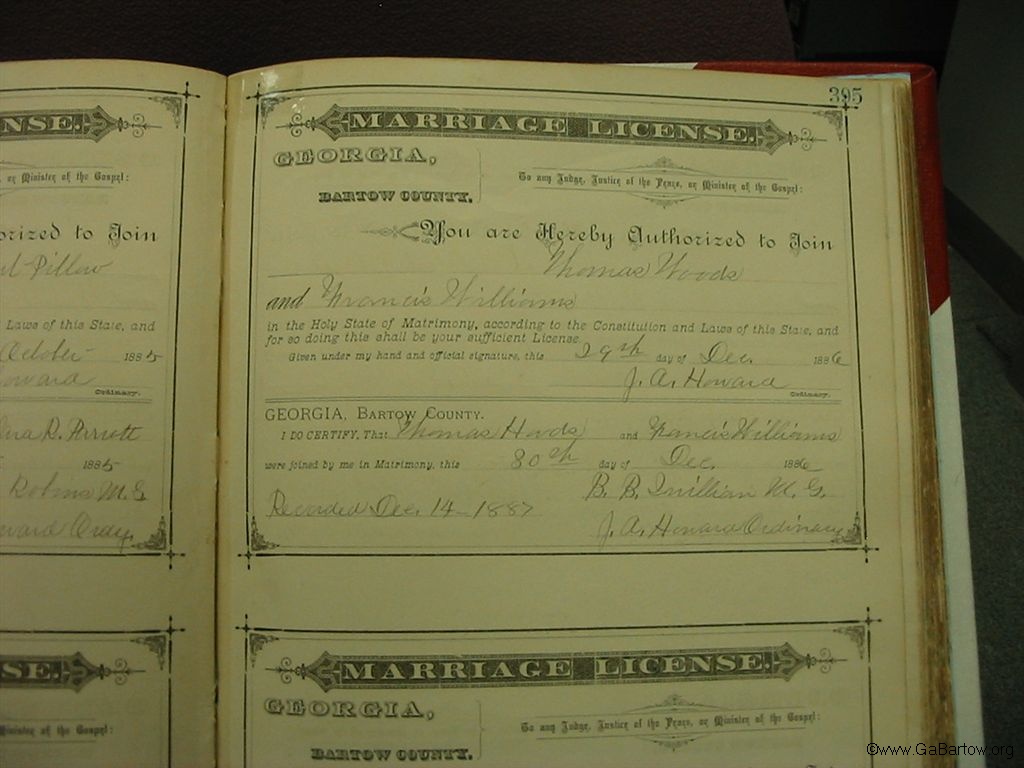 395
NSE.
, or Minister of the Gospel:
orized to Join
Pillow
Laws of this State, and
October 1885
oward
Ordinary.
R. Parrott
1885
M. G.
ward Ordy.
MARRIAGE LICENSE.
GEORGIA,
BARTOW COUNTY.
To any Judge, Justice of the Peace, or Minister of the Gospel:
You are Hereby Authorized to Join
Thomas Woods
and Francis Williams
in the Holy State of Matrimony, according to the Constitution and Laws of this State, and
for so doing this shall be your sufficient License.
Given under my hand and official signature, this 29th day of Dec. 1886
J. A. Howard
Ordinary.
GEORGIA, BARTOW COUNTY.
I DO CERTIFY, That Thomas Woods and Francis Williams
were joined by me in Matrimony, this 30th day of Dec. 1886
B. B. Quillian M. G.
Recorded Dec. 14 - 1887
J. A. Howard Ordinary
SE.
Minister of the Gospel:
MARRIAGE LICENSE.
GEORGIA,
To any Judge, Justice of the Peace, or Minister of the Gospel:
BARTOW COUNTY.
©www.GaBartow.org